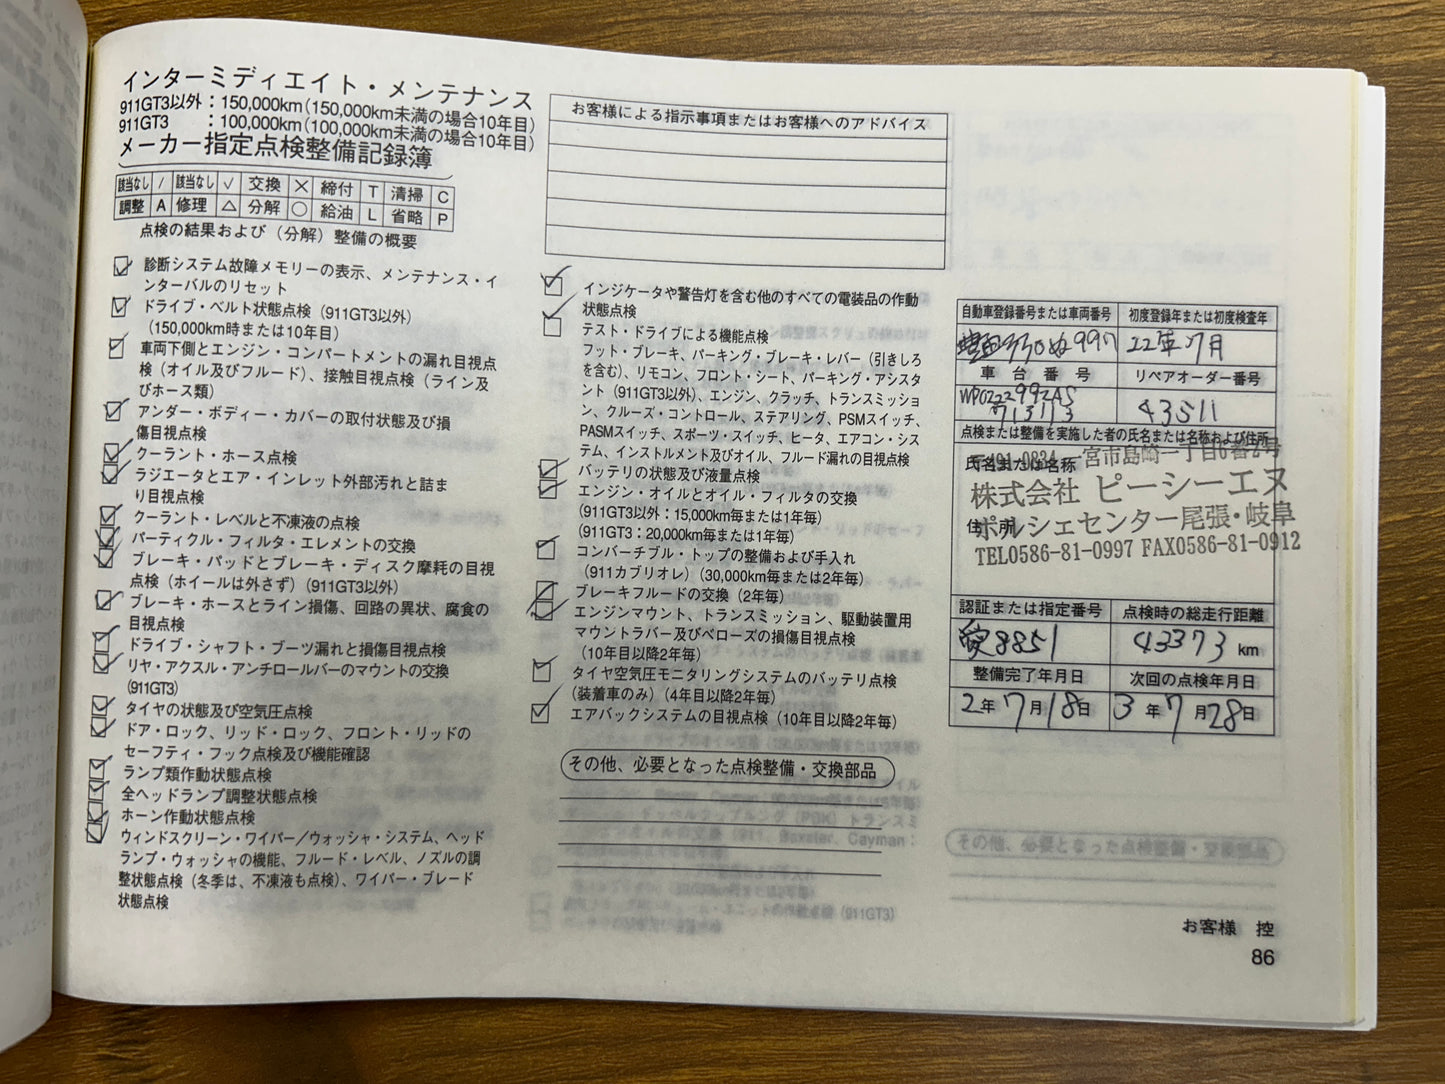 インターミディエイト・メンテナンス
911GT3以外：150,000km（150,000km未満の場合10年目）
911GT3　　：100,000km（100,000km未満の場合10年目）
メーカー指定点検整備記録簿
該当なし / 該当なし ✓ 交換 × 締付 T 清掃 C
調整 A 修理 △ 分解 ○ 給油 L 省略 P
点検の結果および（分解）整備の概要
診断システム故障メモリーの表示、メンテナンス・イ
ンターバルのリセット
ドライブ・ベルト状態点検（911GT3以外）
（150,000km時または10年目）
車両下側とエンジン・コンパートメントの漏れ目視点
検（オイル及びフルード）、接触目視点検（ライン及
びホース類）
アンダー・ボディー・カバーの取付状態及び損
傷目視点検
クーラント・ホース点検
ラジエータとエア・インレット外部汚れと詰ま
り目視点検
クーラント・レベルと不凍液の点検
パーティクル・フィルタ・エレメントの交換
ブレーキ・パッドとブレーキ・ディスク摩耗の目視
点検（ホイールは外さず）（911GT3以外）
ブレーキ・ホースとライン損傷、回路の異状、腐食の
目視点検
ドライブ・シャフト・ブーツ漏れと損傷目視点検
リヤ・アクスル・アンチロールバーのマウントの交換
（911GT3）
タイヤの状態及び空気圧点検
ドア・ロック、リッド・ロック、フロント・リッドの
セーフティ・フック点検及び機能確認
ランプ類作動状態点検
全ヘッドランプ調整状態点検
ホーン作動状態点検
ウィンドスクリーン・ワイパー／ウォッシャ・システム、ヘッド
ランプ・ウォッシャの機能、フルード・レベル、ノズルの調
整状態点検（冬季は、不凍液も点検）、ワイパー・ブレード
状態点検
お客様による指示事項またはお客様へのアドバイス
インジケータや警告灯を含む他のすべての電装品の作動
状態点検
テスト・ドライブによる機能点検
フット・ブレーキ、パーキング・ブレーキ・レバー（引きしろ
を含む）、リモコン、フロント・シート、パーキング・アシスタ
ント（911GT3以外）、エンジン、クラッチ、トランスミッショ
ン、クルーズ・コントロール、ステアリング、PSMスイッチ、
PASMスイッチ、スポーツ・スイッチ、ヒータ、エアコン・シス
テム、インストルメント及びオイル、フルード漏れの目視点検
バッテリの状態及び液量点検
エンジン・オイルとオイル・フィルタの交換
（911GT3以外：15,000km毎または1年毎）
（911GT3：20,000km毎または1年毎）
コンバーチブル・トップの整備および手入れ
（911カブリオレ）（30,000km毎または2年毎）
ブレーキフルードの交換（2年毎）
エンジンマウント、トランスミッション、駆動装置用
マウントラバー及びベローズの損傷目視点検
（10年目以降2年毎）
タイヤ空気圧モニタリングシステムのバッテリ点検
（装着車のみ）（4年目以降2年毎）
エアバックシステムの目視点検（10年目以降2年毎）
その他、必要となった点検整備・交換部品
自動車登録番号または車両番号 初度登録年または初度検査年
豊田330ぬ997 22年7月
車台番号 リペアオーダー番号
WP0ZZZ99ZAS 43511
713113
点検または整備を実施した者の氏名または名称および住所
氏名または名称
〒491-0834 一宮市島崎一丁目6番2号
株式会社 ピーシーエヌ
住所
ポルシェセンター尾張・岐阜
TEL0586-81-0997 FAX0586-81-0912
認証または指定番号 点検時の総走行距離
愛8851 43373 km
整備完了年月日 次回の点検年月日
2年7月18日 3年7月28日
その他、必要となった点検整備・交換部品
お客様 控
86